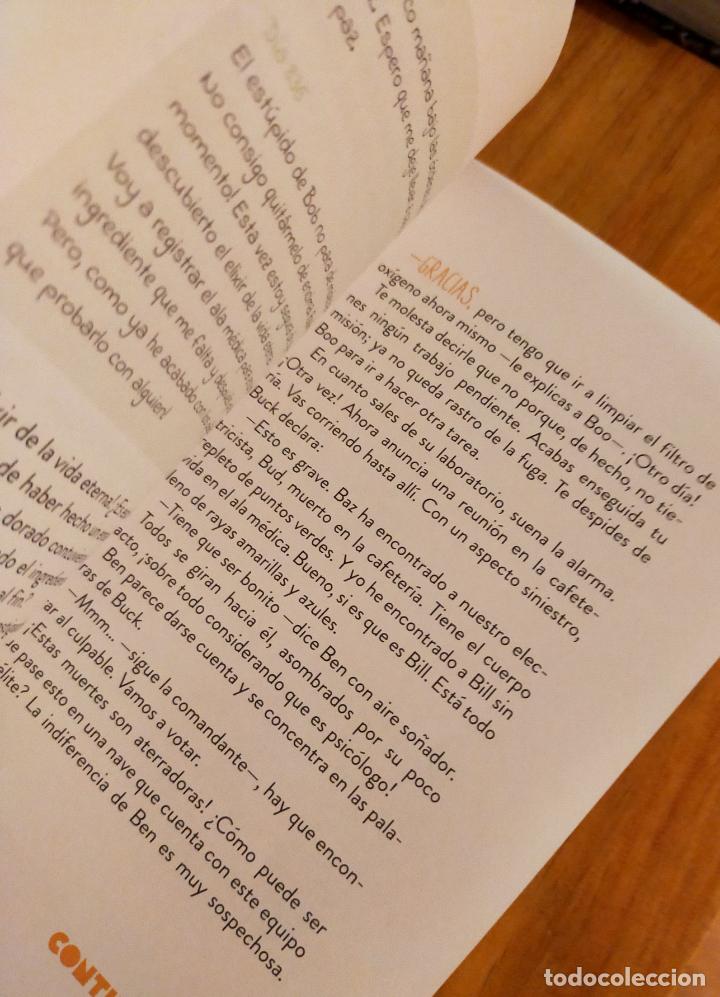 co mañana bajo las
Espero que me deje
paz.
El estúpido de Bob no para de
No consigo quitármelo de encima
momento! Esta vez estoy
descubierto el elixir de la vida
Voy a registrar el ala médica
ingrediente que me falta y
Pero, como ya he acabado con
que probarlo con alguien!
de la vida eternal
de haber hecho un
dorado
do el
al fin?
—GRACIAS, pero tengo que ir a limpiar el filtro de
oxígeno ahora mismo —le explicas a Boo—. ¡Otro día!
Te molesta decirle que no porque, de hecho, no tie-
nes ningún trabajo pendiente. Acabas enseguida tu
misión; ya no queda rastro de la fuga. Te despides de
Boo para ir a hacer otra tarea.
En cuanto sales de su laboratorio, suena la alarma.
¡Otra vez! Ahora anuncia una reunión en la cafete-
ría. Vas corriendo hasta allí. Con un aspecto siniestro,
Buck declara:
—Esto es grave. Baz ha encontrado a nuestro elec-
tricista, Bud, muerto en la cafetería. Tiene el cuerpo
repleto de puntos verdes. Y yo he encontrado a Bill sin
vida en el ala médica. Bueno, si es que es Bill. Está todo
leno de rayas amarillas y azules.
—Tiene que ser bonito —dice Ben con aire soñador.
Todos se giran hacia él, asombrados por su poco
acto, ¡sobre todo considerando que es psicólogo!
Ben parece darse cuenta y se concentra en las pala-
ras de Buck.
—Mmm... —sigue la comandante—, hay que encon-
ar al culpable. Vamos a votar.
¡Estas muertes son aterradoras! ¿Cómo puede ser
ue pase esto en una nave que cuenta con este equipo
élite? La indiferencia de Ben es muy sospechosa.
CONTI
todocoleccion